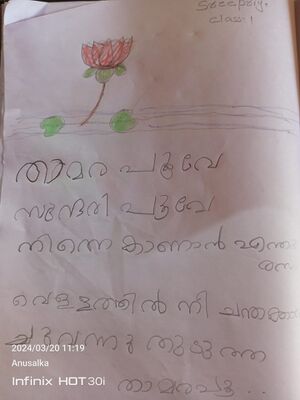 Sreepriya
class 1
താമര പൂവേ
സുന്ദരി പൂവേ
നിന്നെ കാണാൻ എന്തു
വെള്ളത്തിൽ നീ
ചുവന്നു തുടുത്ത
താമരപൂ...
2024/03/20 11:19
Anusalka
Infinix HOT 30i